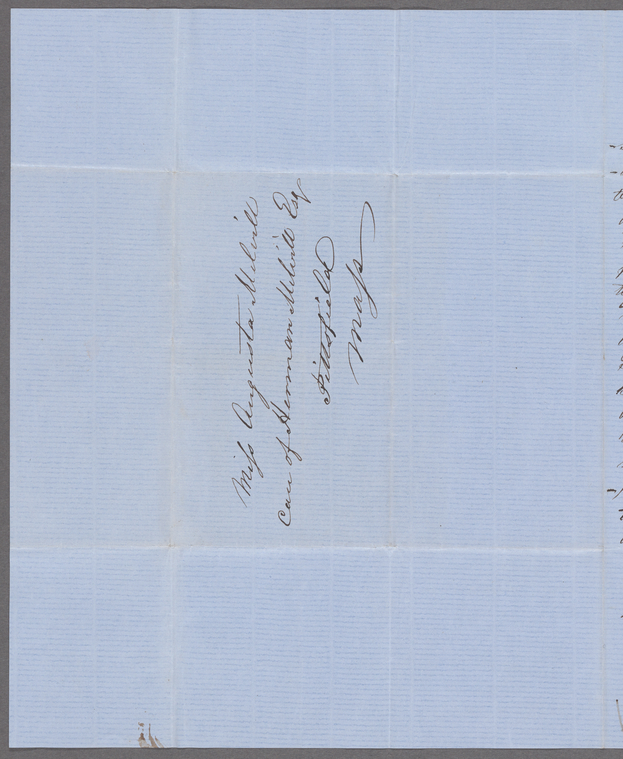 Miss Augusta Melvill
Care of Herman Melvill Esq
Pittsfield
Mass